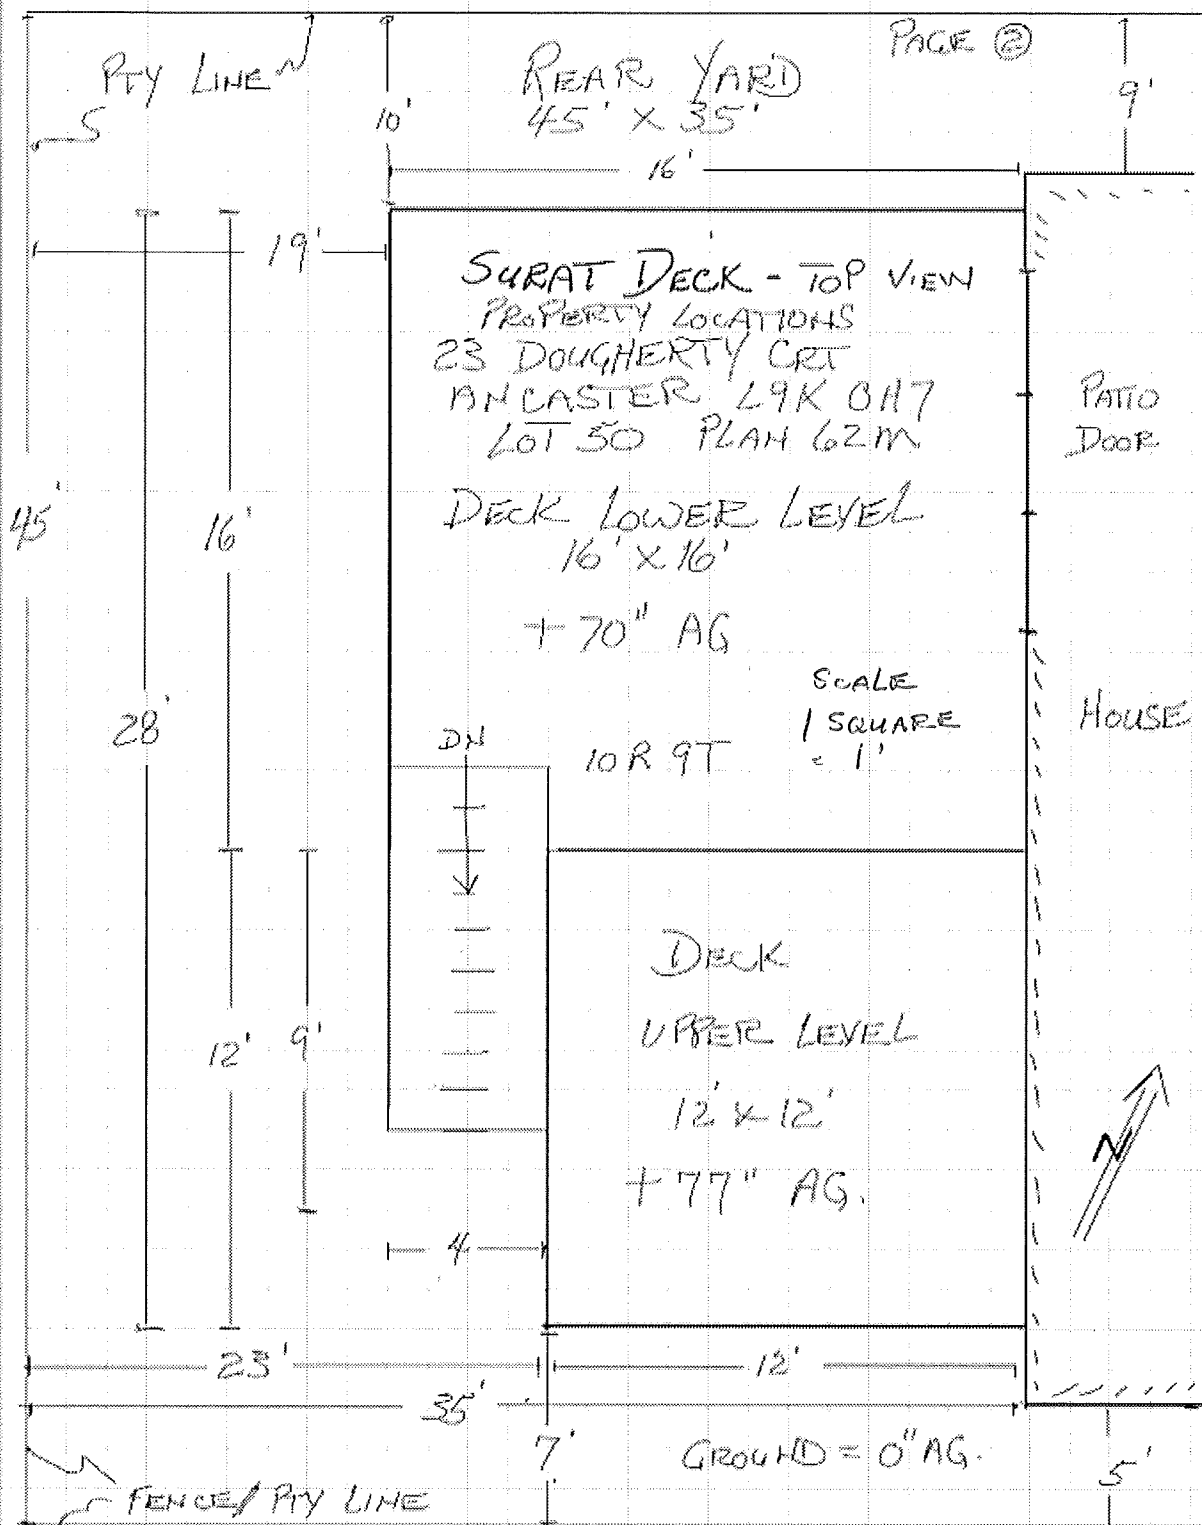 PAGE ②
PTY LINE
REAR YARD
45' X 35'
10'
9'
16'
19'
SURAT DECK - TOP VIEW
PROPERTY LOCATIONS
23 DOUGHERTY CRT
ANCASTER L9K 0H7
LOT 50 PLAN 62M
PATIO
DOOR
DECK LOWER LEVEL
16' X 16'
+ 70" AG
45'
16'
28'
SCALE
1 SQUARE
= 1'
HOUSE
DN
10 R 9T
DECK
UPPER LEVEL
12' X 12'
+ 77" AG.
12'
9'
N
4
23'
12'
35'
7'
GROUND = 0" AG.
5'
FENCE/ PTY LINE